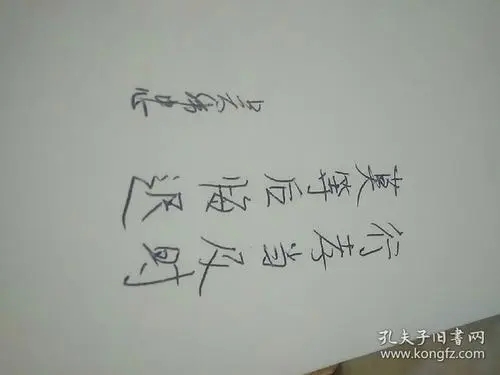 行孝当及时
莫等后悔迟
孔夫子旧书网
www.kongfz.com